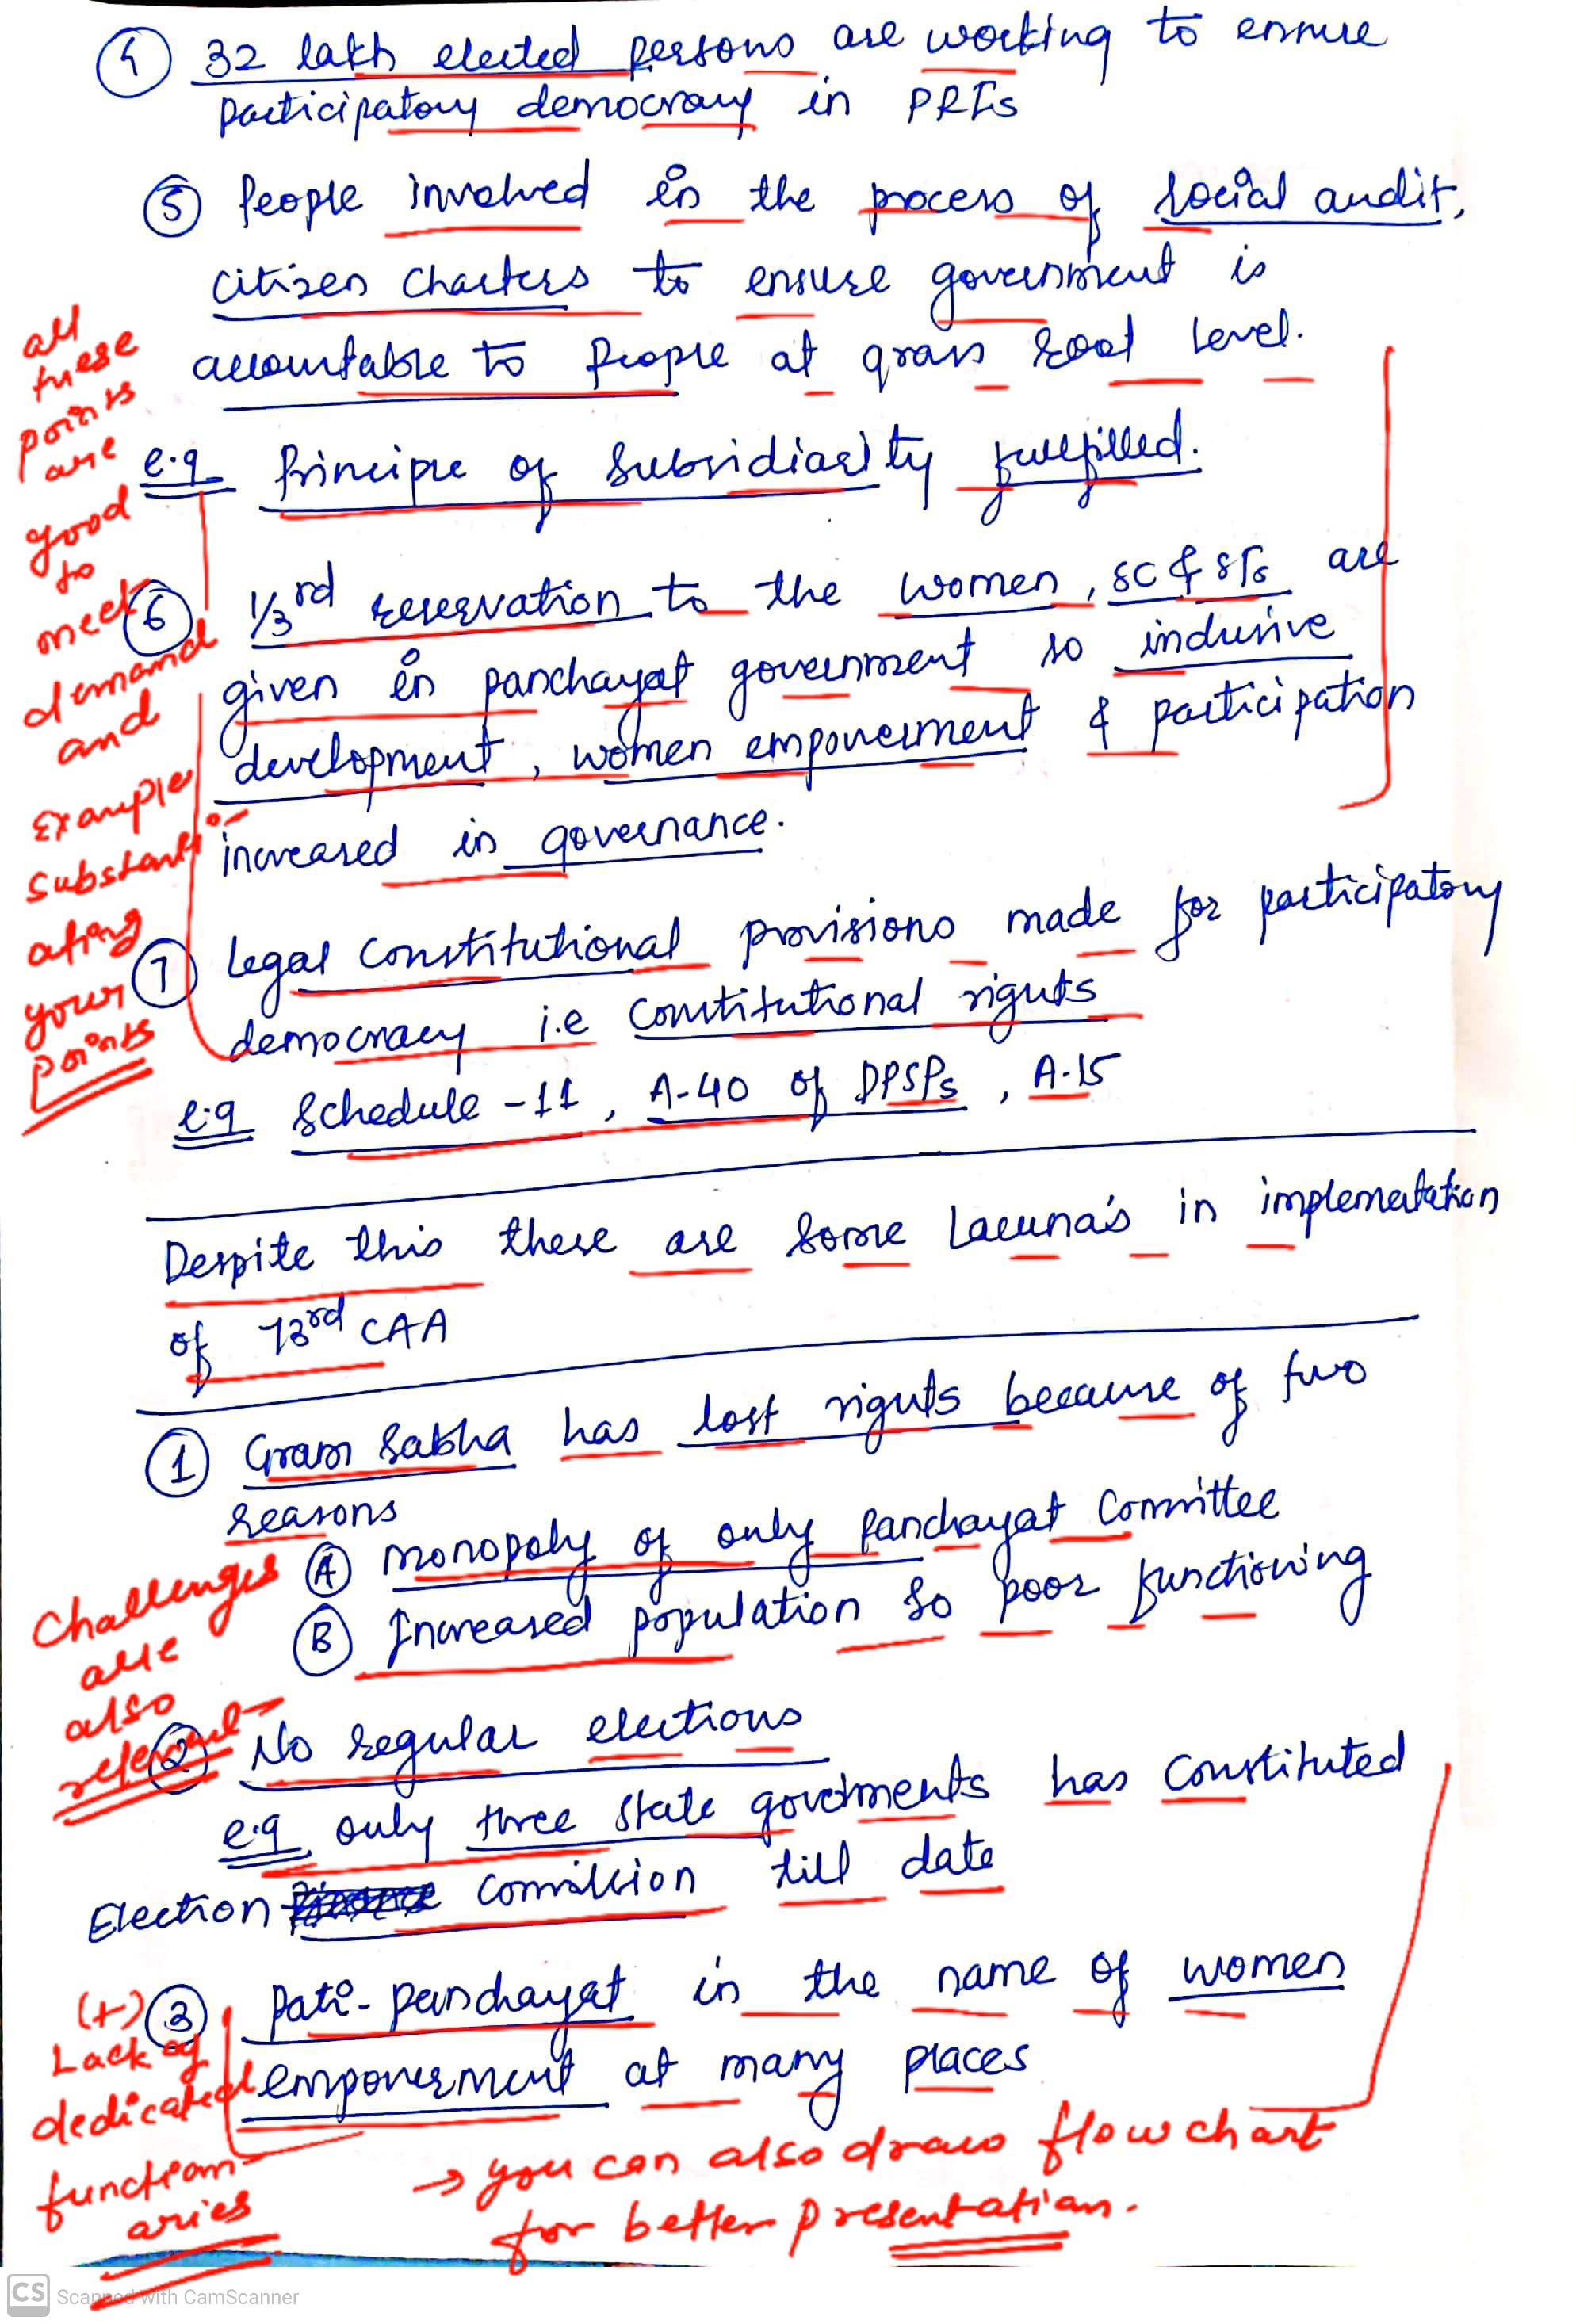 ④ 32 lakh elected persons are working to ensure
participatory democracy in PRIs
⑤ People involved in the process of social audit,
citizen charters to ensure government is
accountable to people at grass root level.
e.g Principle of subsidiarity fulfilled.
⑥ 1/3rd reservation to the women, SC & STs are
given in panchayat government so inclusive
development, women empowerment & participation
increased in governance.
⑦ Legal constitutional provisions made for participatory
democracy i.e constitutional rights
e.g Schedule -11, A-40 of DPSPs, A-15
all
these
points
are
good
to
meet
demand
and
Example
substanti-
ating
your
points
Despite this there are some Lacuna's in implementation
of 73rd CAA
① Gram Sabha has lost rights because of two
reasons
Ⓐ monopoly of only Panchayat Committee
Ⓑ Increased population so poor functioning
② No regular elections
e.g only three state governments has constituted
Election commission till date
③ Pati-panchayat in the name of women
empowerment at many places
Challenges
are
also
relevant
(+)
Lack of
dedicated
function-
aries
→ you can also draw flowchart
for better presentation.
CS Scanned with CamScanner